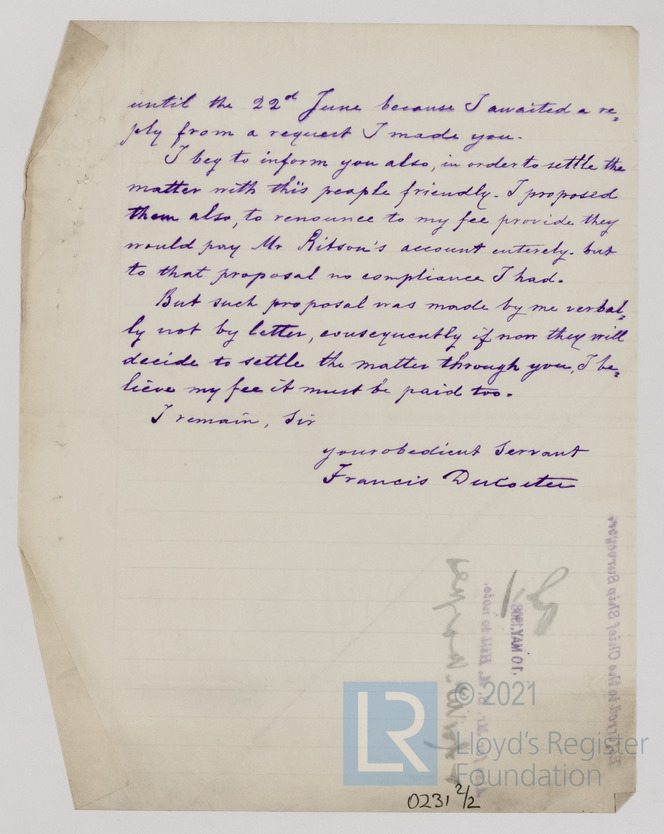 until the 22d June because I awaited a re=
ply from a request I made you.
I beg to inform you also, in order to settle the
matter with this people friendly. I proposed
them also, to renounce to my fee provide they
would pay Mr Ritson's account enterely. but
to that proposal no compliance I had.
But such proposal was made by me verbal=
ly not by letter, consequently if now they will
decide to settle the matter through you, I be=
lieve my fee it must be paid too.
I remain, Sir
your obedient Servant
Francis
the Chief Ship Surveyor
Hill to note.
10 MAY
© 2021
LR
Lloyd's Register
Foundation
0231 2/2